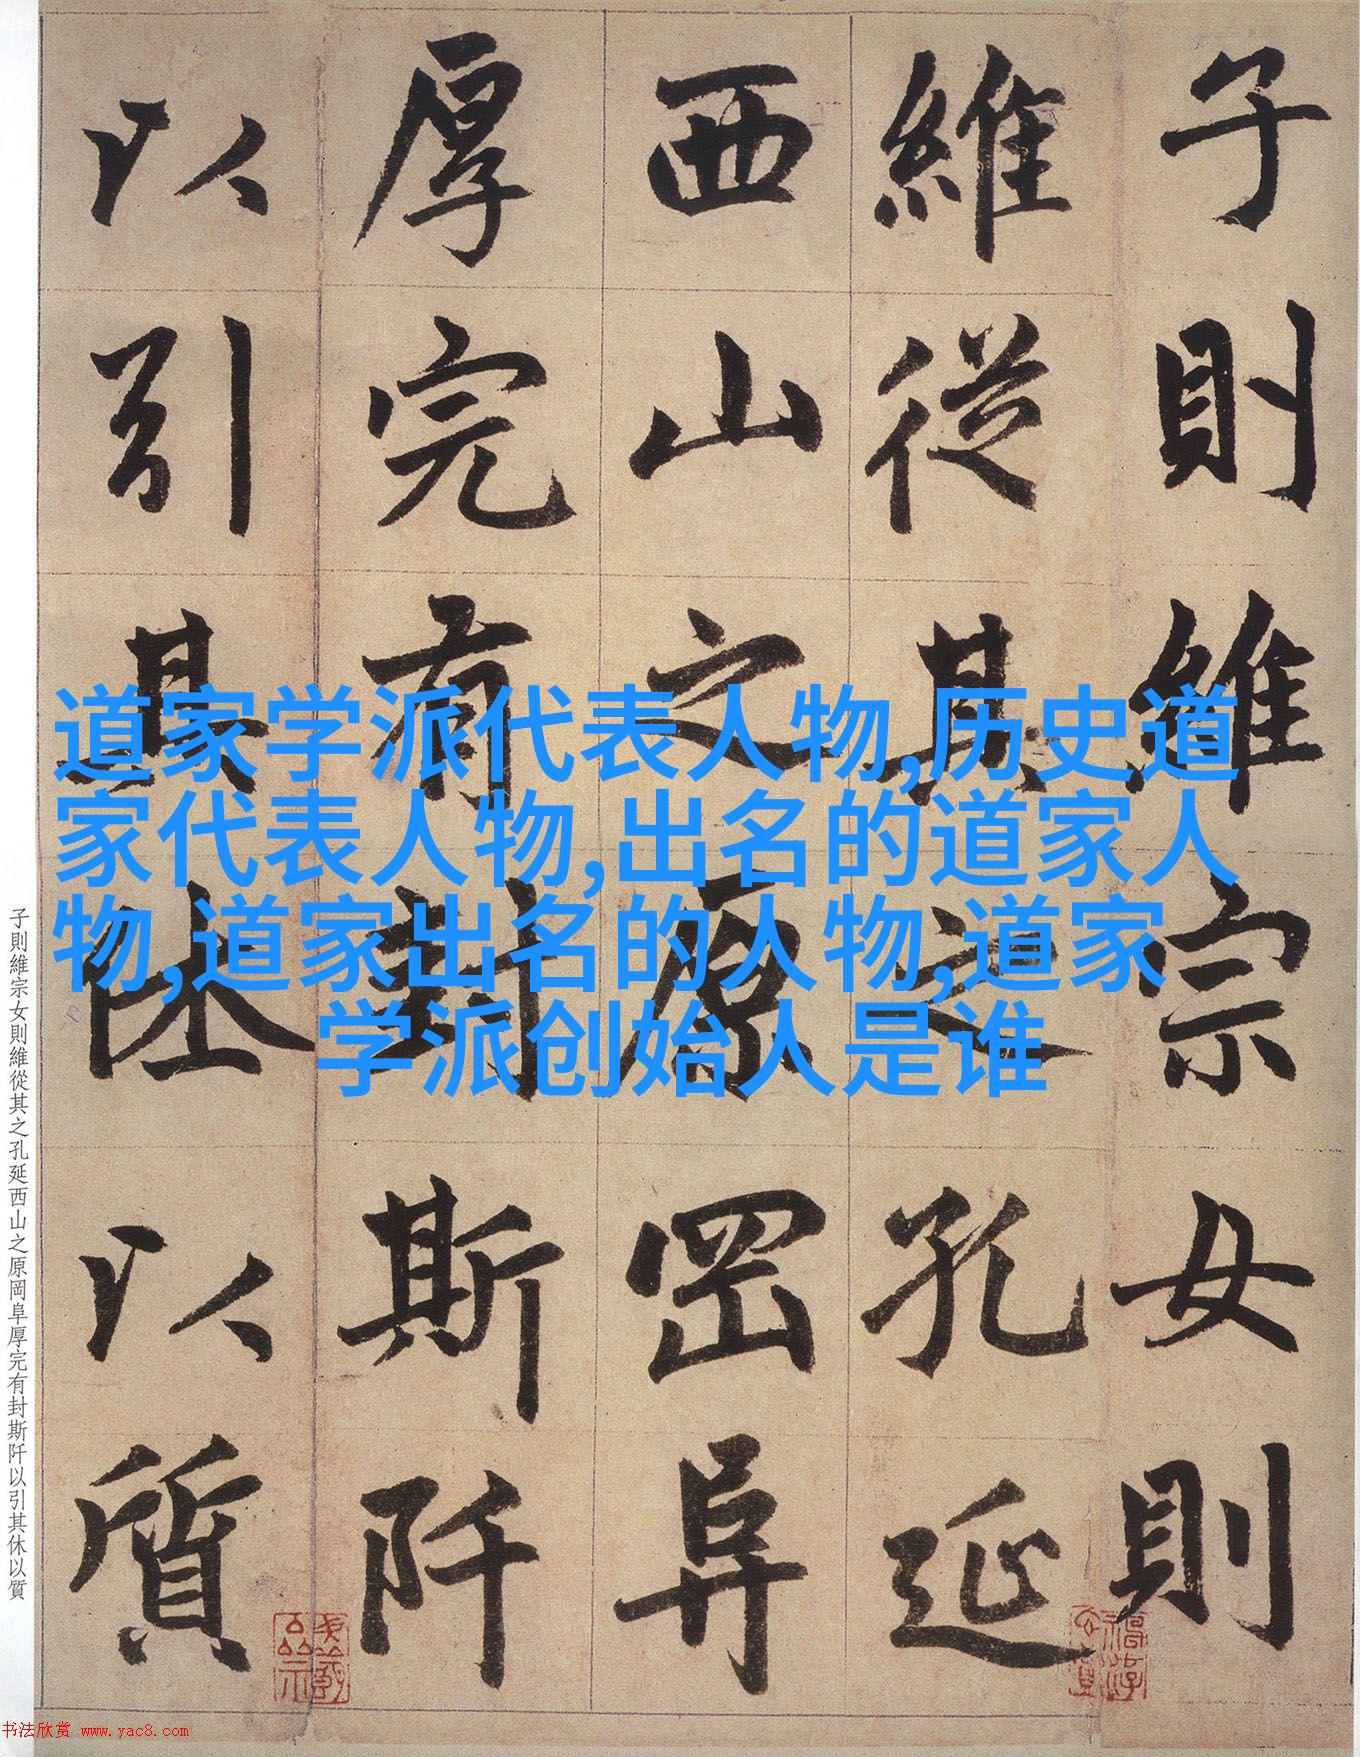 子則維宗女則
維從其之孔延
西山之原岡阜
厚完有封斯阡
以引其休以質
道家学派代表人物,历史道
家代表人物,出名的道家人
物,道家出名的人物,道家
学派创始人是谁
子則維宗女則維從其之孔延西山之原岡阜厚完有封斯阡以引其休以質
书法欣赏 www.yac8.com